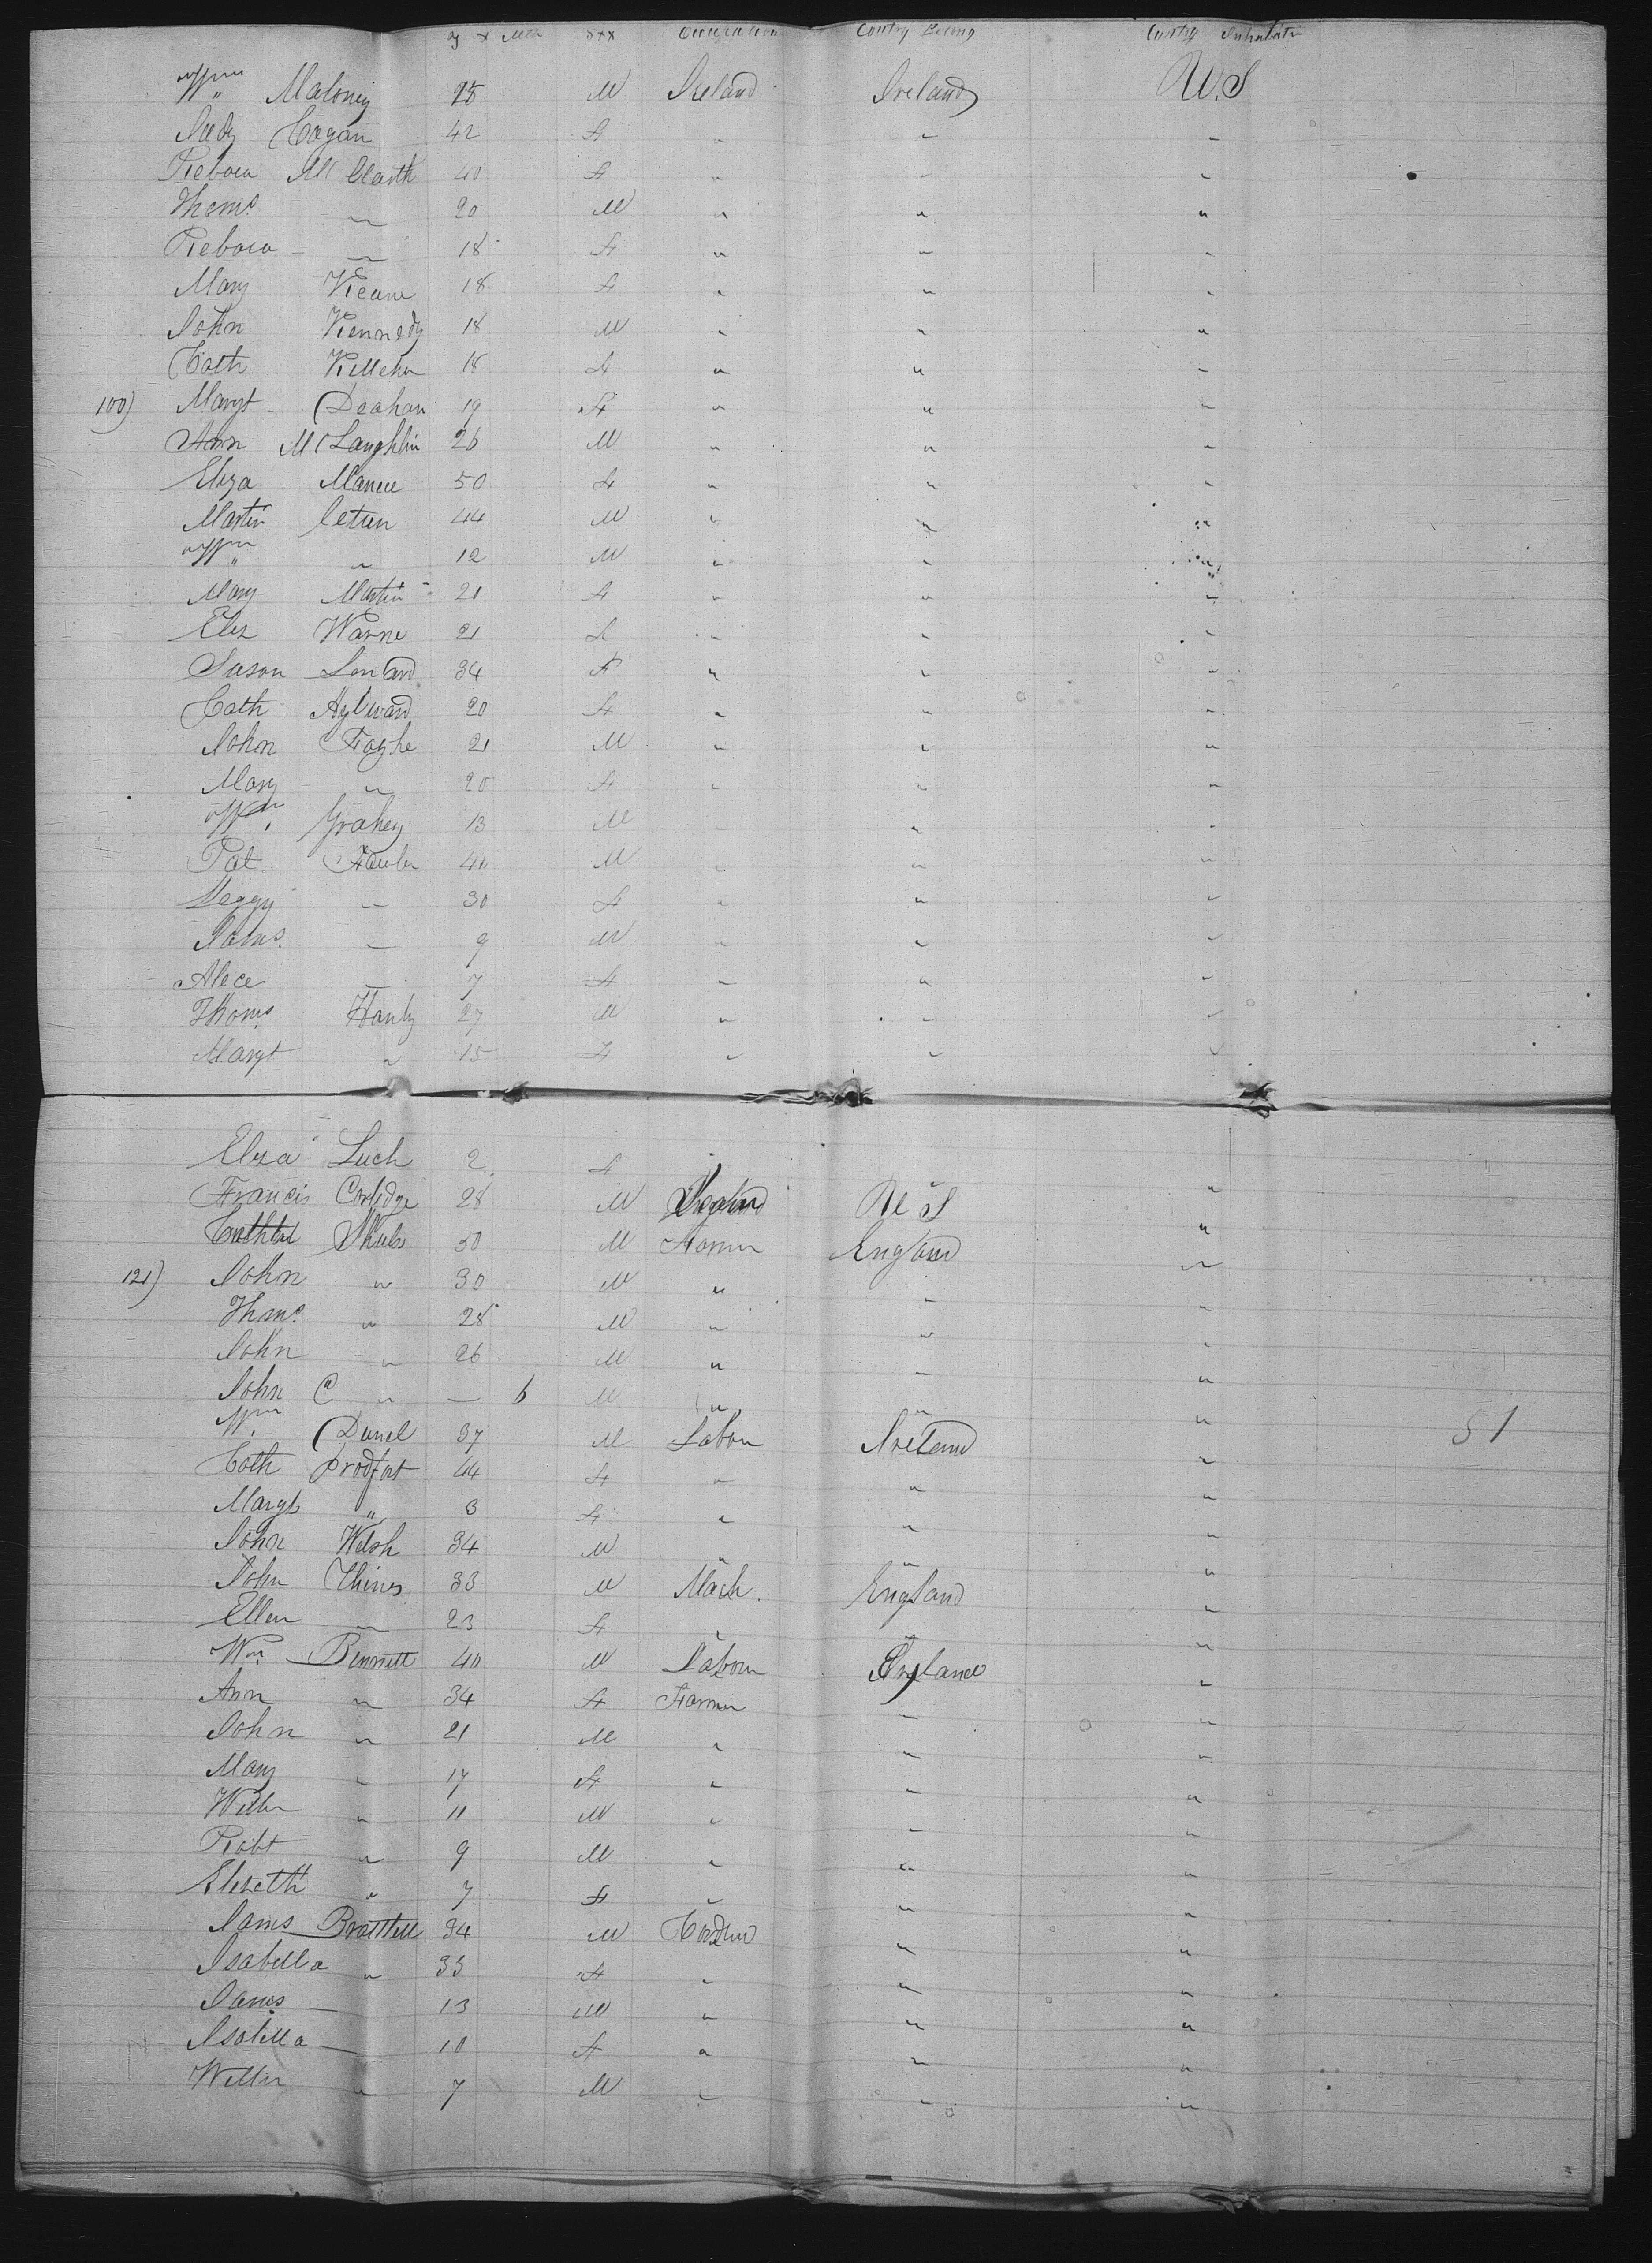 ag x Mth Sex Occupation Contry Belong Contry Inhabita
Wm Maloney 28 M Ireland Ireland U.S
Judy Cogan 42 F " " "
Rebeca Mc Clarth 40 F " " "
Thoms " 20 M " " "
Rebeca " 18 F " " "
Mary Keane 18 F " " "
John Kennedy 18 M " " "
Cath Killehr 18 F " " "
100) Margt Deahan 19 F " " "
Ann Mc Laughlin 26 M " " "
Eliza 50 F " " "
Martin 44 M " " "
Wm " 12 M " " "
Mary Martin 21 F " " "
Eliz Warne 21 F " " "
Suson Lenard 34 F " " "
Cath Aylward 20 F " " "
John Foyhe 21 M " " "
Mary " 20 F " " "
Wm Grahey 13 M " " "
Pat 40 M " " "
Peggy — 30 F " " "
Jams. — 9 M " " "
Alece — 7 F " " "
Thoms Hanly 27 M " " "
Margt " 15 F " " "
Elza Luch 2 F "
Francis 28 M England U S "
50 M Farmer England "
121) John " 30 M " " "
Thms " 28 M " " "
John " 26 M " " "
John C " — 6 M " " "
Wm Danel 37 M Labou Ireland " 51
Cath Prodfort 44 F " " "
Margt " 3 F " " "
John Welsh 34 M " " "
John 33 M Mach. England "
Ellen " 23 F " " "
Wm Bennett 40 M Labour England "
Ann " 34 F Farmer " "
John " 21 M " " "
Mary " 17 F " " "
Willm " 11 M " " "
Robt " 9 M " " "
Elezeth " 7 F " " "
Jams Brattell 34 M " "
Isabella " 33 F " " "
Jams — 13 M " " "
Isabella — 10 F " " "
Willm " 7 M " " "